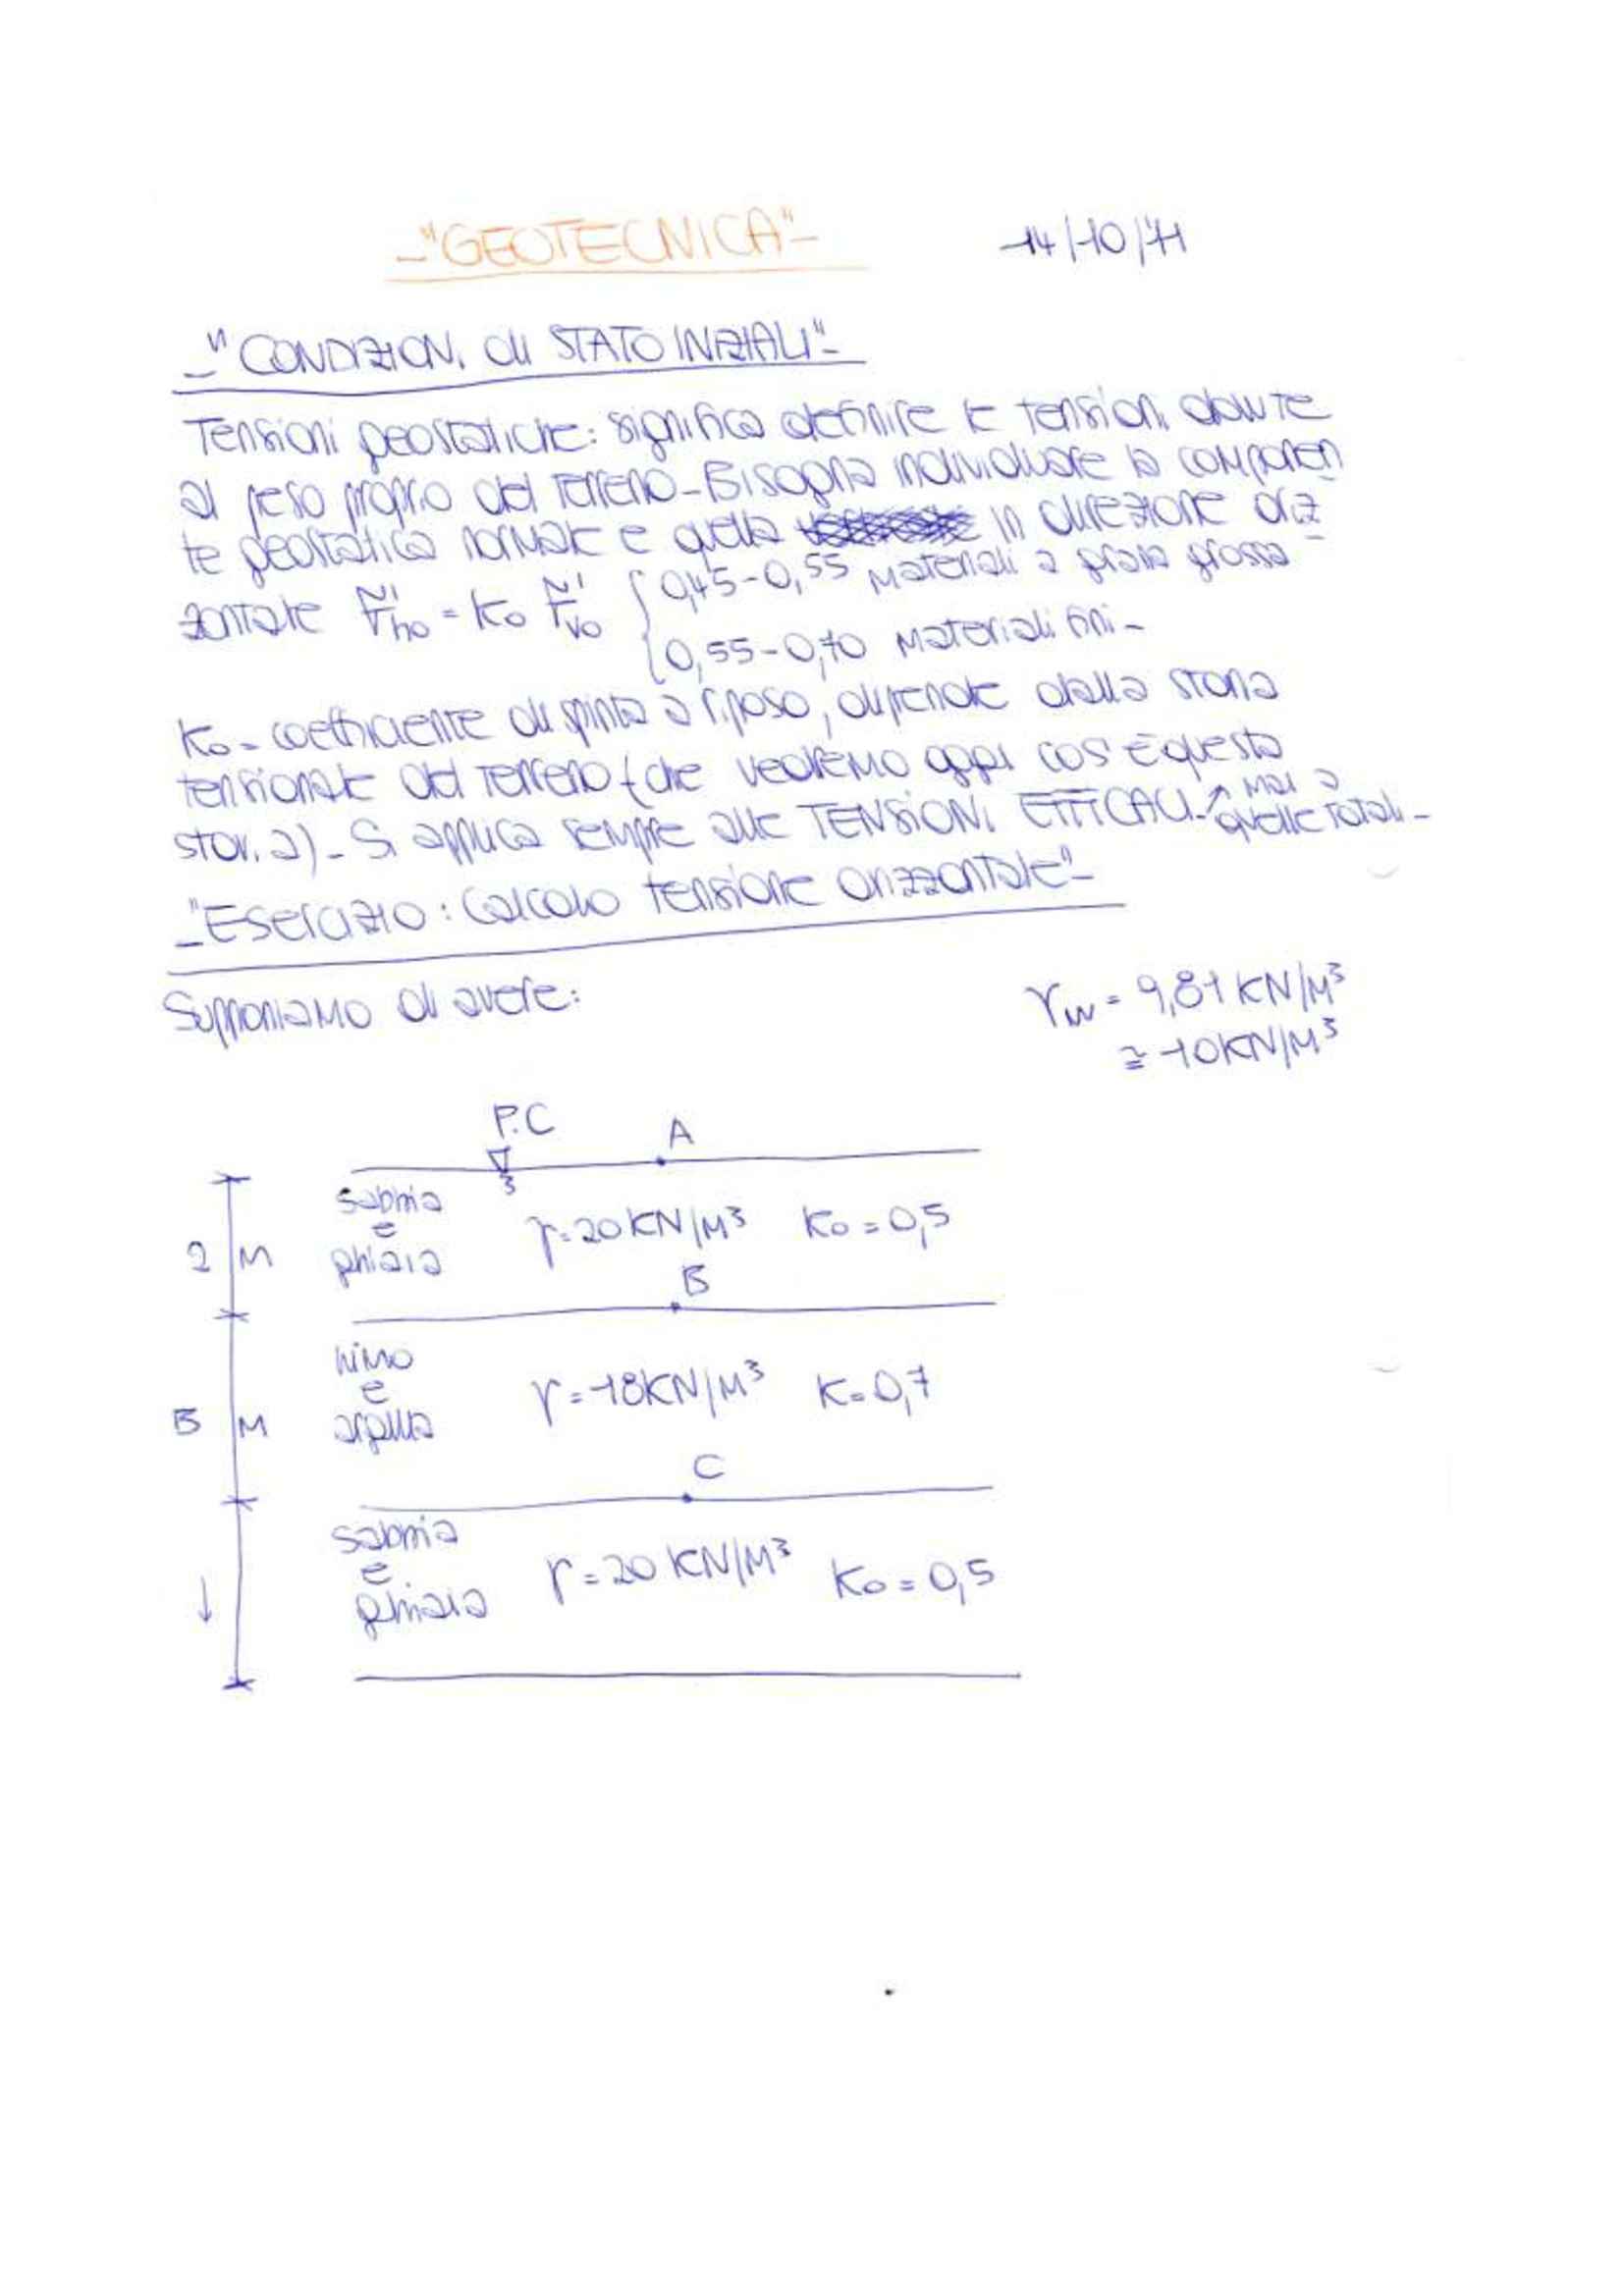 -"GEOTECNICA"-
14/10/11
-"CONDIZIONI di STATO INIZIALI"-
Tensioni geostatiche: significa definire le tensioni dovute
al peso proprio del terreno-Bisogna individuare la componen
te geostatica normale e quella in direzione oriz
zontale σ'ho = Ko σ'vo { 0,45-0,55 materiali a grana grossa
0,55-0,70 materiali fini-
Ko = coefficiente di spinta a riposo, dipende dalla storia
tensionale del terreno (che vedremo oggi cos'è questa
storia)- Si applica sempre alle TENSIONI EFFICACI- mai a
quelle totali-
-"Esercizio: calcolo tensione orizzontale"-
Supponiamo di avere:
γw = 9,81 KN/M³
≅ 10KN/M³
P.C
A
sabbia
e
ghiaia
γ=20KN/M³ Ko=0,5
2 M
B
limo
e
argilla
γ=18KN/M³ K=0,7
5 M
C
sabbia
e
ghiaia
γ=20 KN/M³ Ko=0,5
↓